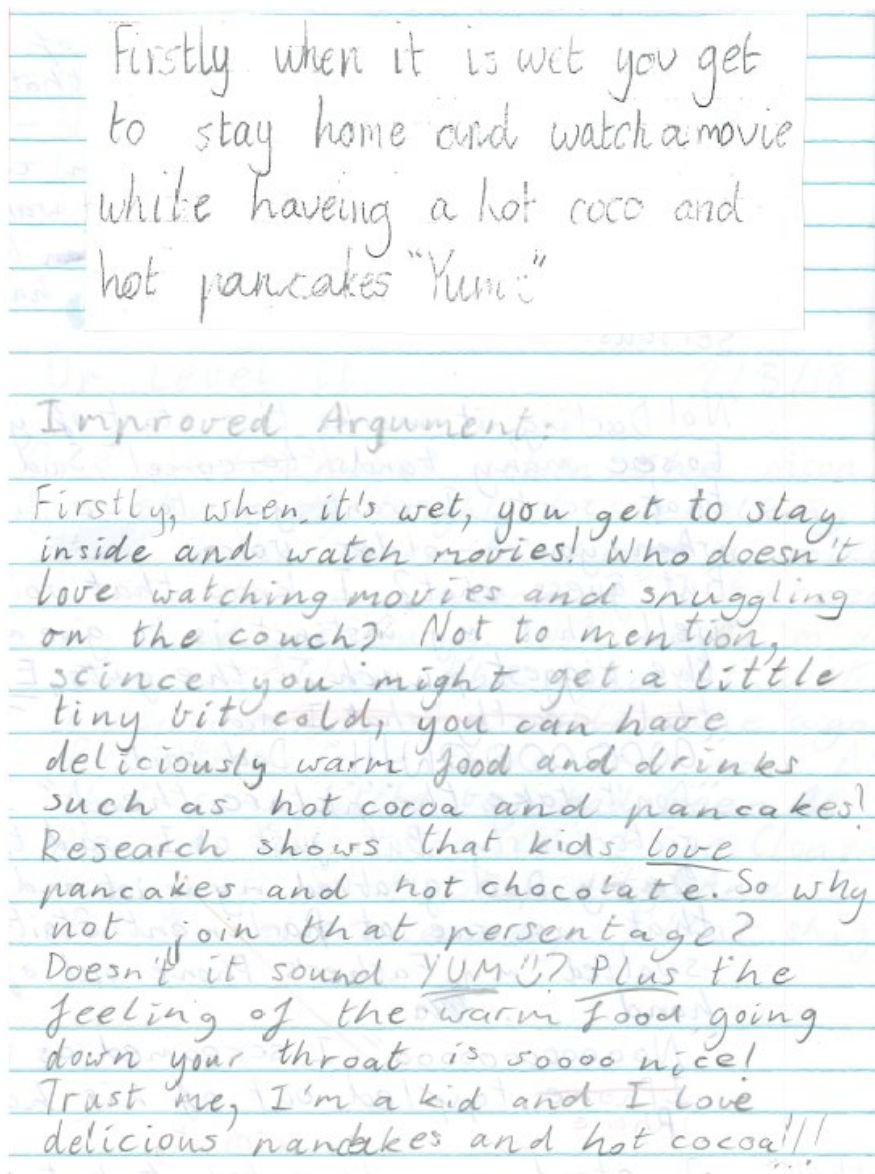 Firstly when it is wet you get
to stay home and watch a movie
while haveing a hot coco and
hot pancakes "Yum:"
Improved Argument:
Firstly, when it's wet, you get to stay
inside and watch movies! Who doesn't
love watching movies and snuggling
on the couch? Not to mention,
scince you might get a little
tiny bit cold, you can have
deliciously warm food and drinks
such as hot cocoa and pancakes!
Research shows that kids love
pancakes and hot chocolate. So why
not join that persentage?
Doesn't it sound YUM☺? Plus the
feeling of the warm food going
down your throat is soooo nice!
Trust me, I'm a kid and I love
delicious pancakes and hot cocoa!!!